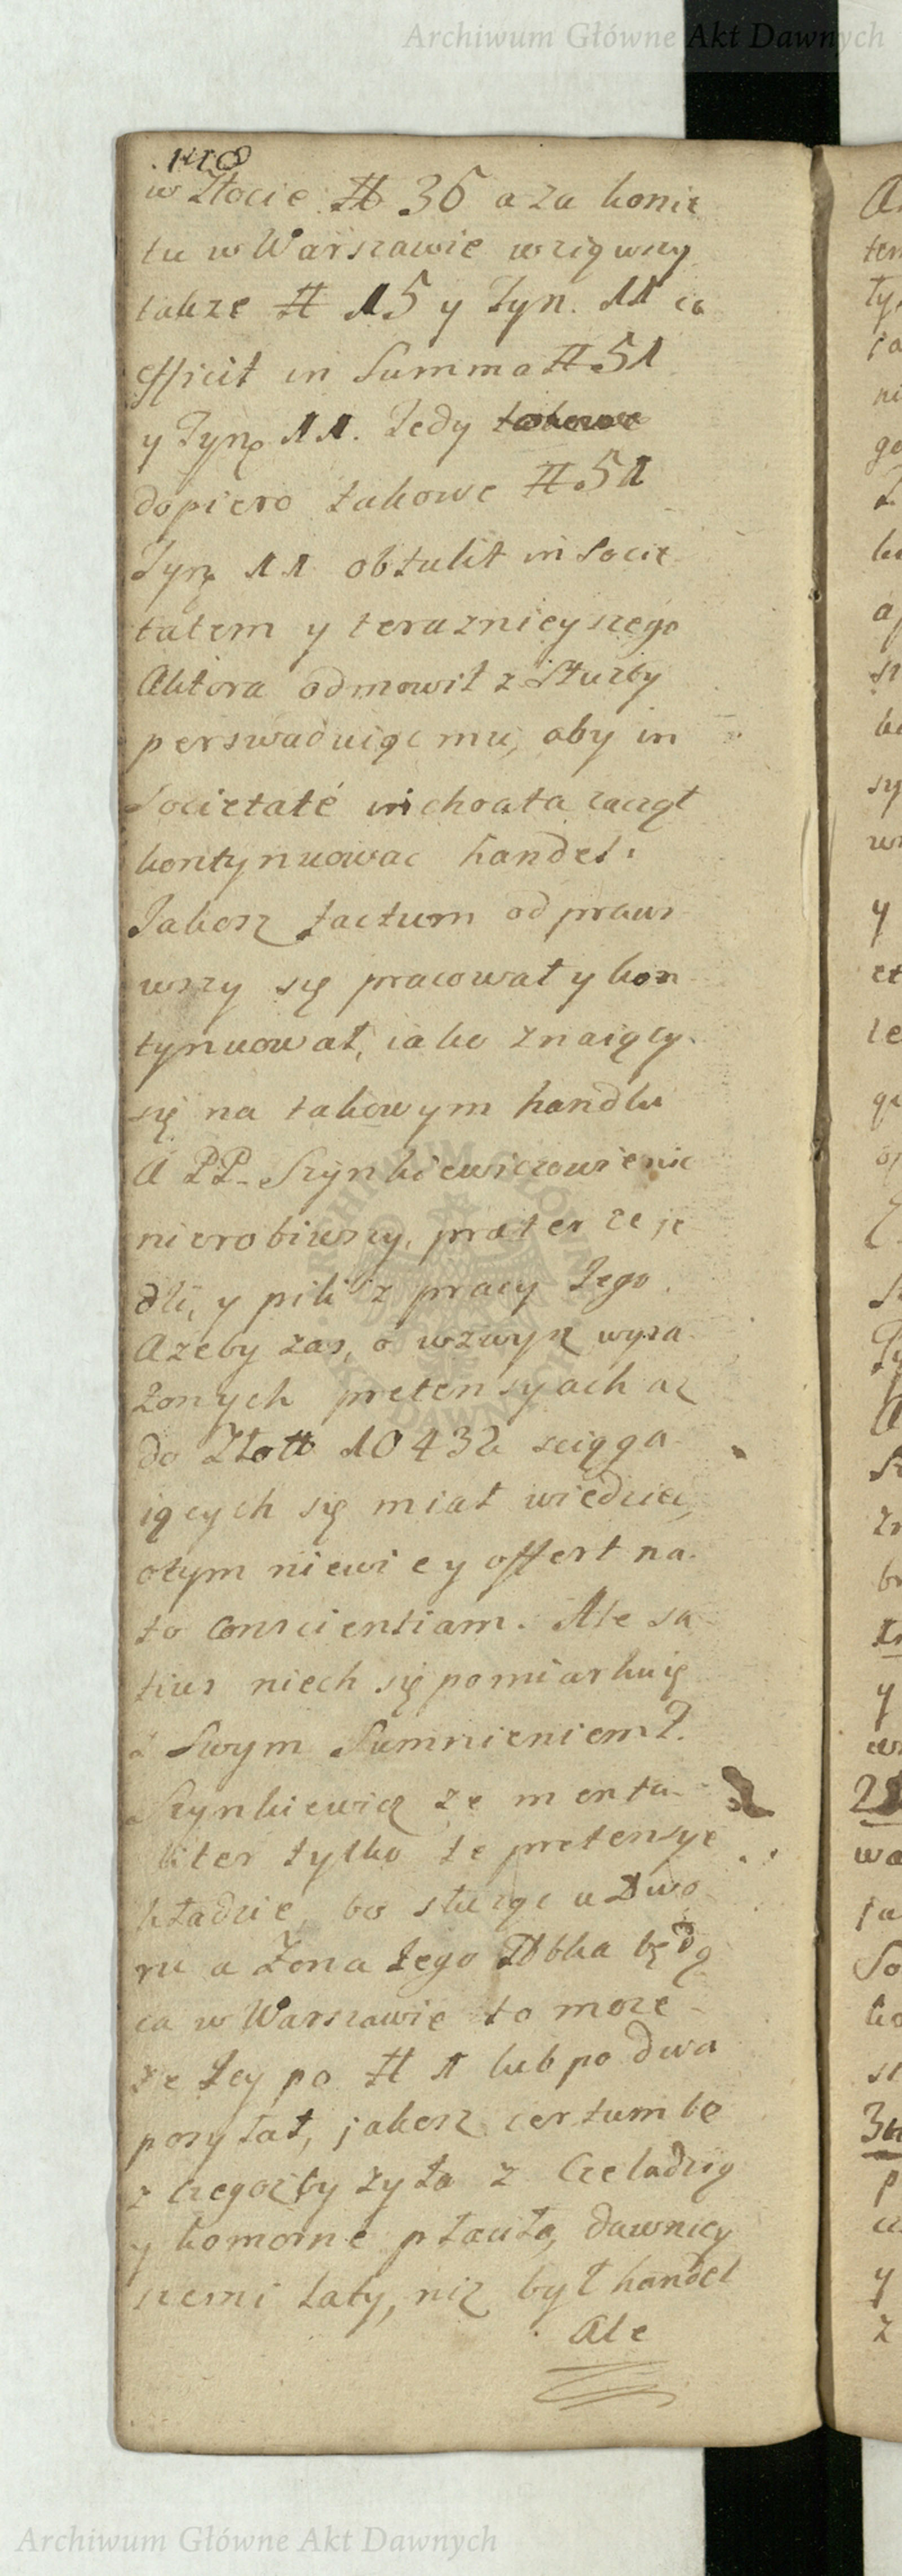 Archiwum Główne Akt Dawnych
w Złocie # 36 a za konie
tu w Warszawie wziąwszy
takze # 15 y Tyn. 11 co
efficit in Summa # 51
y Tynf. 11. Tedy takowe
dopiero takowe # 51
Tynf 11 obtulit in Socie
tatem y teraznieyszego
Aktora odmowił z Służby
perswaduiąc mu, aby in
Societaté inchoata zaczął
kontynuowac handel.
Jakosz factum odpraw
wszy się pracował y kon
tynuował, iako znaiący
się na takowym handlu
A PP. Szynkiewiczowie nic
nierobiwszy, præter ze je
dli, y pili z pracy Jego.
Azeby zas, o wzwyz wyra
zonych pretensyach az
do Złott 10432 sciąga
iących się miał wiedziec,
otym niewie y offert na
to conscientiam. Ale sa
tius niech się pomiarkuię
z Swym Sumnieniem P.
Szynkiewicz ze menta
liter tylko te pretensye
kładzie, bo słuząc u Dwo
ru a Zona Jego będą
ca w Warszawie to moze
ze Jey po # 1 lub po dwa
posyłał, jakosz certum be
z czegozby zyła z Czeladzią
y komorne płaciła, dawniey
szemi laty, niz był handel
Ale
Archiwum Główne Akt Dawnych